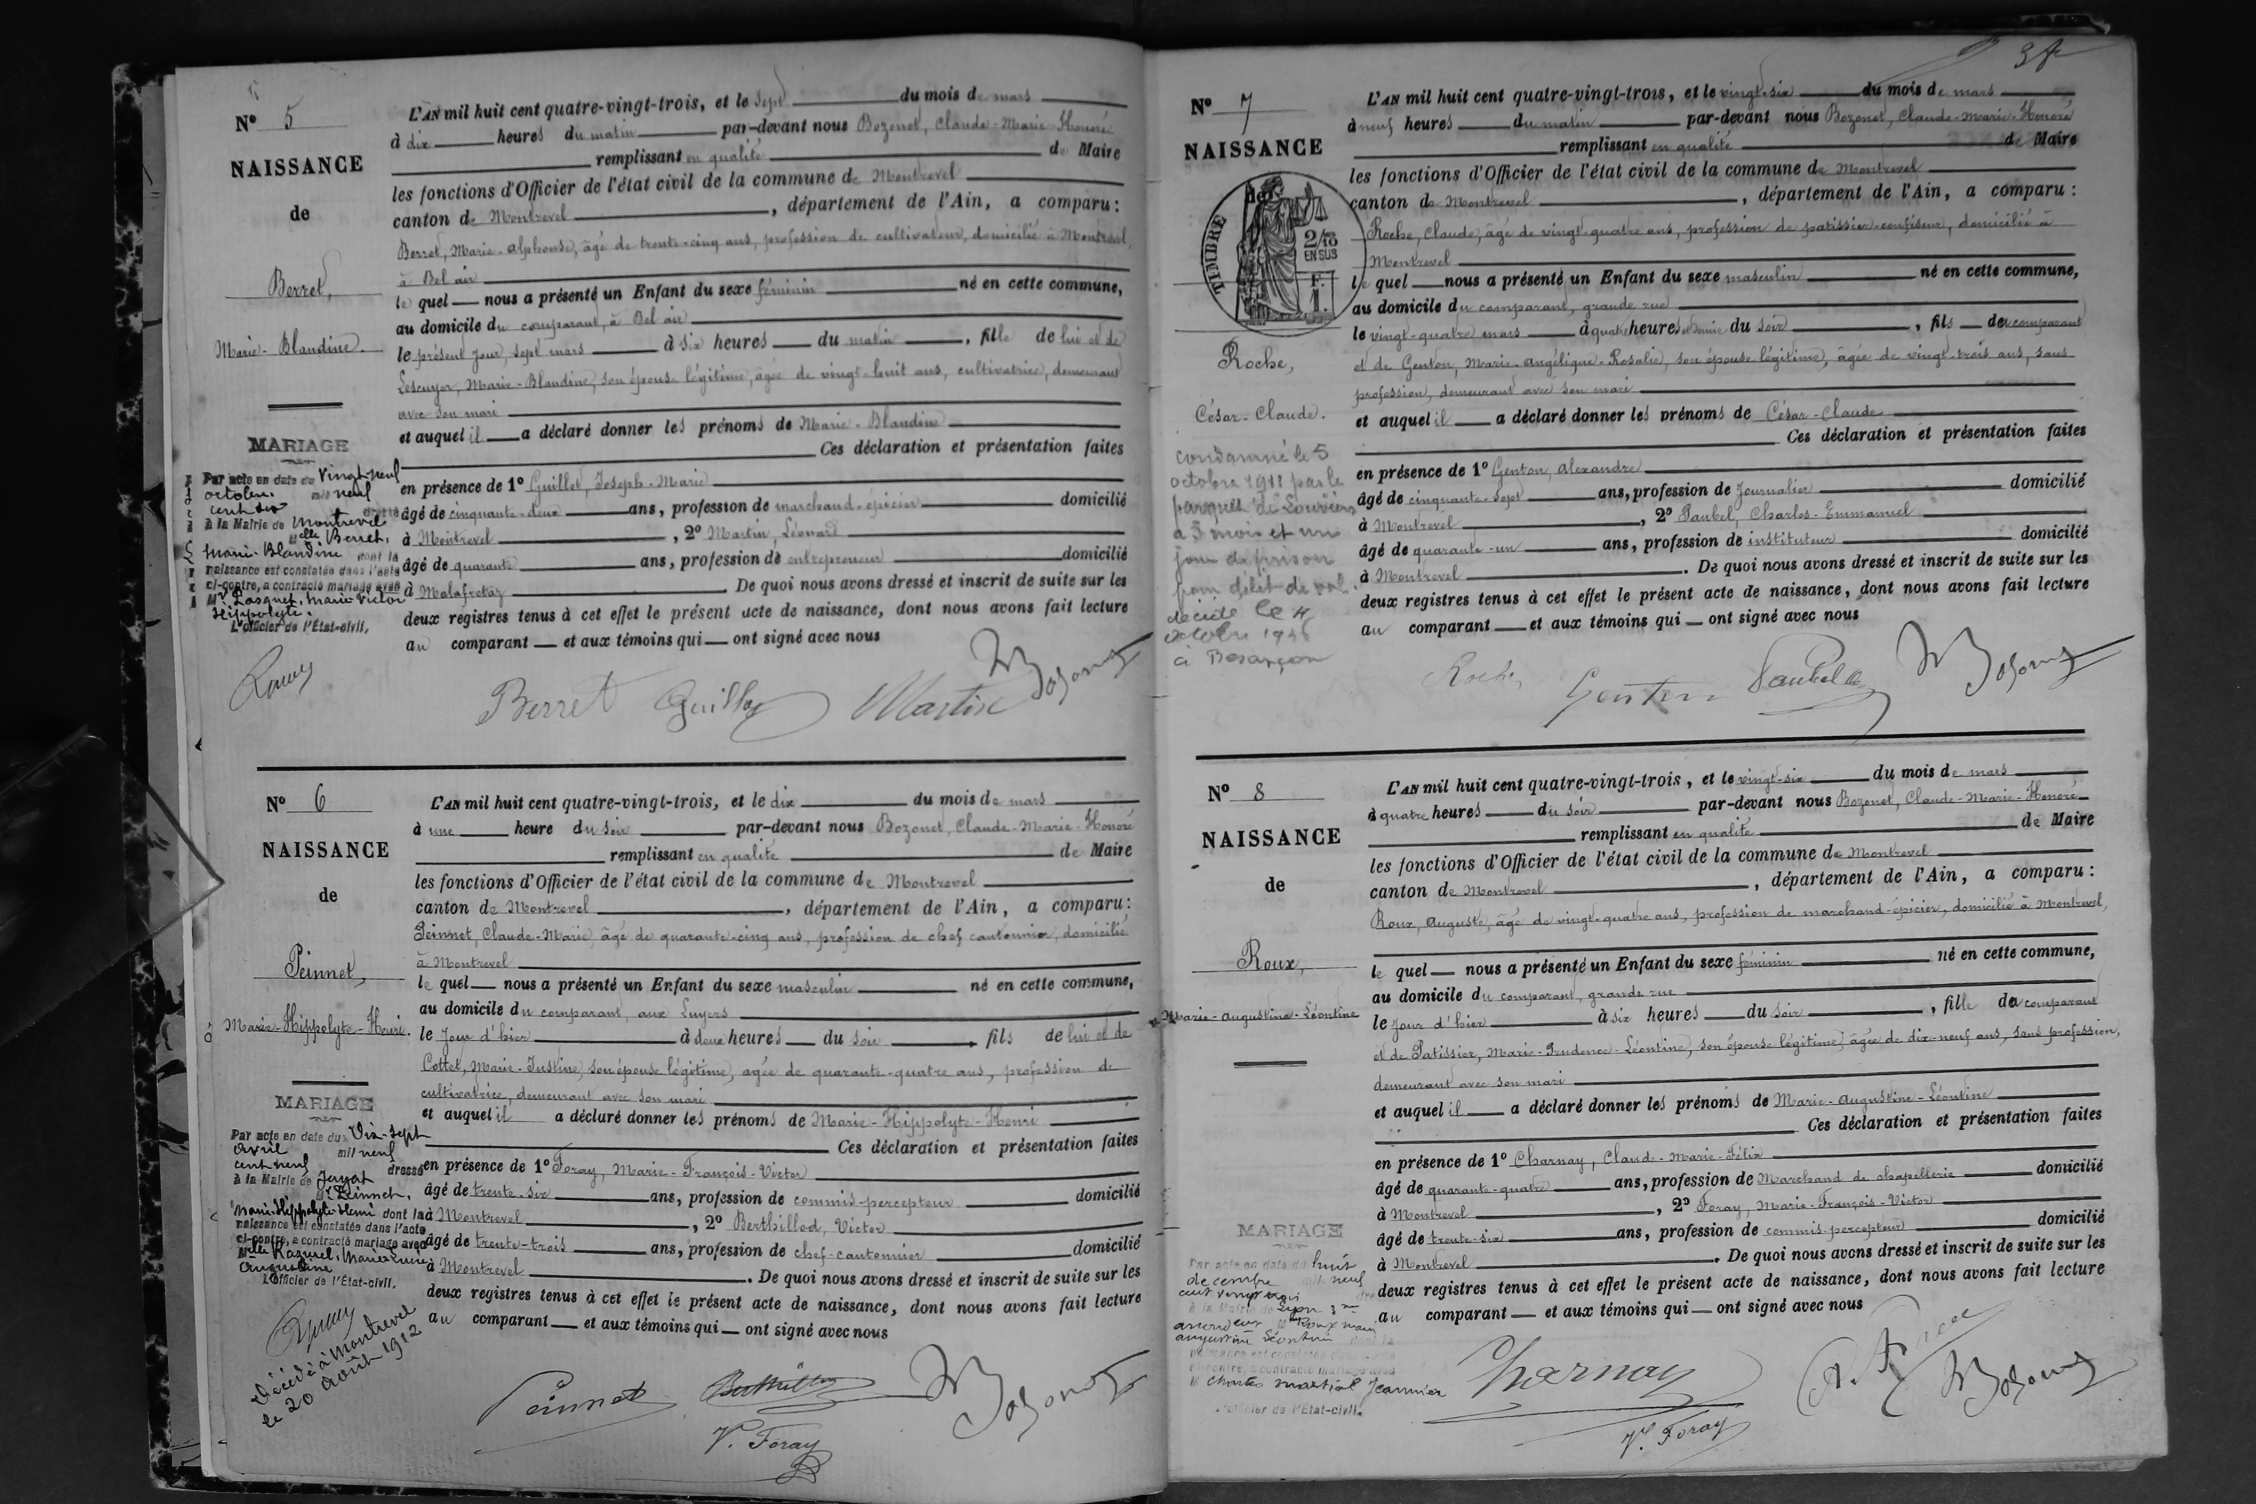 N° 5
NAISSANCE
de
Berret,
Marie-Blandine.
L'AN mil huit cent quatre-vingt-trois, et le sept du mois de mars
à dix heures du matin par-devant nous Bozonet, Claude-Marie-Honoré
remplissant en qualité de Maire
les fonctions d'Officier de l'état civil de la commune de Montrevel
canton de Montrevel, département de l'Ain, a comparu:
Berret, Marie-Alphonse, âgé de trente-cinq ans, profession de cultivateur, domicilié à Montrevel,
à Bel air
le quel nous a présenté un Enfant du sexe féminin né en cette commune,
au domicile du comparant, à Bel air
le présent jour, sept mars à six heures du matin, fille de lui et de
Lescuyer, Marie-Blandine, son épouse légitime, âgée de vingt-huit ans, cultivatrice, demeurant
avec son mari
et auquel il a déclaré donner les prénoms de Marie-Blandine
Ces déclaration et présentation faites
en présence de 1° Guillet, Joseph-Marie
âgé de cinquante-deux ans, profession de marchand-épicier domicilié
à Montrevel, 2° Martin, Léonard
âgé de quarante ans, profession de entrepreneur domicilié
à Malafretaz De quoi nous avons dressé et inscrit de suite sur les
deux registres tenus à cet effet le présent acte de naissance, dont nous avons fait lecture
au comparant et aux témoins qui ont signé avec nous
MARIAGE
Par acte en date du Vingt-neuf
octobre mil neuf
cent six dressé
à la Mairie de Montrevel
Melle Berret,
Marie-Blandine dont la
naissance est constatée dans l'acte
ci-contre, a contracté mariage avec
Mr Pasquet, Marie Victor
Hippolyte.
L'officier de l'État-civil,
Berret Guillet Martin Bozonet
N° 6
NAISSANCE
de
Peinnet,
Marie-Hippolyte-Henri.
L'AN mil huit cent quatre-vingt-trois, et le dix du mois de mars
à une heure du soir par-devant nous Bozonet, Claude-Marie-Honoré
remplissant en qualité de Maire
les fonctions d'Officier de l'état civil de la commune de Montrevel
canton de Montrevel, département de l'Ain, a comparu:
Peinnet, Claude-Marie, âgé de quarante-cinq ans, profession de chef cantonnier, domicilié
à Montrevel
le quel nous a présenté un Enfant du sexe masculin né en cette commune,
au domicile du comparant, aux Luyers
le jour d'hier à deux heures du soir, fils de lui et de
Cottet, Marie-Justine, son épouse légitime, âgée de quarante-quatre ans, profession de
cultivatrice, demeurant avec son mari
et auquel il a déclaré donner les prénoms de Marie-Hippolyte-Henri
Ces déclaration et présentation faites
en présence de 1° Foray, Marie-François-Victor
âgé de trente-six ans, profession de commis-percepteur domicilié
à Montrevel, 2° Berthillod, Victor
âgé de trente-trois ans, profession de chef-cantonnier domicilié
à Montrevel. De quoi nous avons dressé et inscrit de suite sur les
deux registres tenus à cet effet le présent acte de naissance, dont nous avons fait lecture
au comparant et aux témoins qui ont signé avec nous
MARIAGE
Par acte en date du Dix-sept
avril mil neuf
cent neuf dressé
à la Mairie de Jayat
Mr Peinnet,
Marie-Hippolyte-Henri dont la
naissance est constatée dans l'acte
ci-contre, a contracté mariage avec
Melle Razurel, Marie
Augustine
L'officier de l'État-civil.
Décédé à Montrevel
le 20 août 1912
Peinnet Berthillod Bozonet
V. Foray
N° 7
NAISSANCE
de
TIMBRE
2/10
EN SUS
F.
1.
Roche,
César-Claude.
L'AN mil huit cent quatre-vingt-trois, et le vingt-six du mois de mars
à neuf heures du matin par-devant nous Bozonet, Claude-Marie-Honoré
remplissant en qualité de Maire
les fonctions d'Officier de l'état civil de la commune de Montrevel
canton de Montrevel, département de l'Ain, a comparu:
Roche, Claude, âgé de vingt-quatre ans, profession de patissier-confiseur, domicilié à
Montrevel
le quel nous a présenté un Enfant du sexe masculin né en cette commune,
au domicile du comparant, grande rue
le vingt-quatre mars à quatre heures et demie du soir, fils du comparant
et de Genton, Marie-Angélique-Rosalie, son épouse légitime, âgée de vingt-trois ans, sans
profession, demeurant avec son mari
et auquel il a déclaré donner les prénoms de César-Claude
Ces déclaration et présentation faites
en présence de 1° Genton, Alexandre
âgé de cinquante-sept ans, profession de Journalier domicilié
à Montrevel, 2° Paubel, Charles-Emmanuel
âgé de quarante-un ans, profession de instituteur domicilié
à Montrevel. De quoi nous avons dressé et inscrit de suite sur les
deux registres tenus à cet effet le présent acte de naissance, dont nous avons fait lecture
au comparant et aux témoins qui ont signé avec nous
condamné le 5
octobre 1911 par le
parquet de Louviers
a 3 mois et un
jour de prison
pour délit de vol.
décédé le 4
octobre
à Besançon
Roche Genton Paubel Bozonet
N° 8
NAISSANCE
de
Roux,
Marie-Augustine-Léontine
L'AN mil huit cent quatre-vingt-trois, et le vingt-six du mois de mars
à quatre heures du soir par-devant nous Bozonet, Claude-Marie-Honoré
remplissant en qualité de Maire
les fonctions d'Officier de l'état civil de la commune de Montrevel
canton de Montrevel, département de l'Ain, a comparu:
Roux, Auguste, âgé de vingt-quatre ans, profession de marchand-épicier, domicilié à Montrevel,
le quel nous a présenté un Enfant du sexe féminin né en cette commune,
au domicile du comparant, grande rue
le jour d'hier à six heures du soir, fille du comparant
et de Patissier, Marie-Prudence-Léontine, son épouse légitime, âgée de dix-neuf ans, sans profession,
demeurant avec son mari
et auquel il a déclaré donner les prénoms de Marie-Augustine-Léontine
Ces déclaration et présentation faites
en présence de 1° Charnay, Claud-Marie-Félix
âgé de quarante-quatre ans, profession de Marchand de chapellerie domicilié
à Montrevel, 2° Foray, Marie-François-Victor
âgé de trente-six ans, profession de commis-percepteur domicilié
à Montrevel. De quoi nous avons dressé et inscrit de suite sur les
deux registres tenus à cet effet le présent acte de naissance, dont nous avons fait lecture
au comparant et aux témoins qui ont signé avec nous
MARIAGE
Par acte en date du huit
décembre mil neuf
cent vingt trois
à la Mairie de Lyon 3me
arrond Roux Marie
Augustine Léontine dont la
naissance est constatée dans l'acte
ci-contre, a contracté mariage avec
M Charles Martial Jeannier
L'officier de l'État-civil.
Charnay A. Roux Bozonet
V. Foray